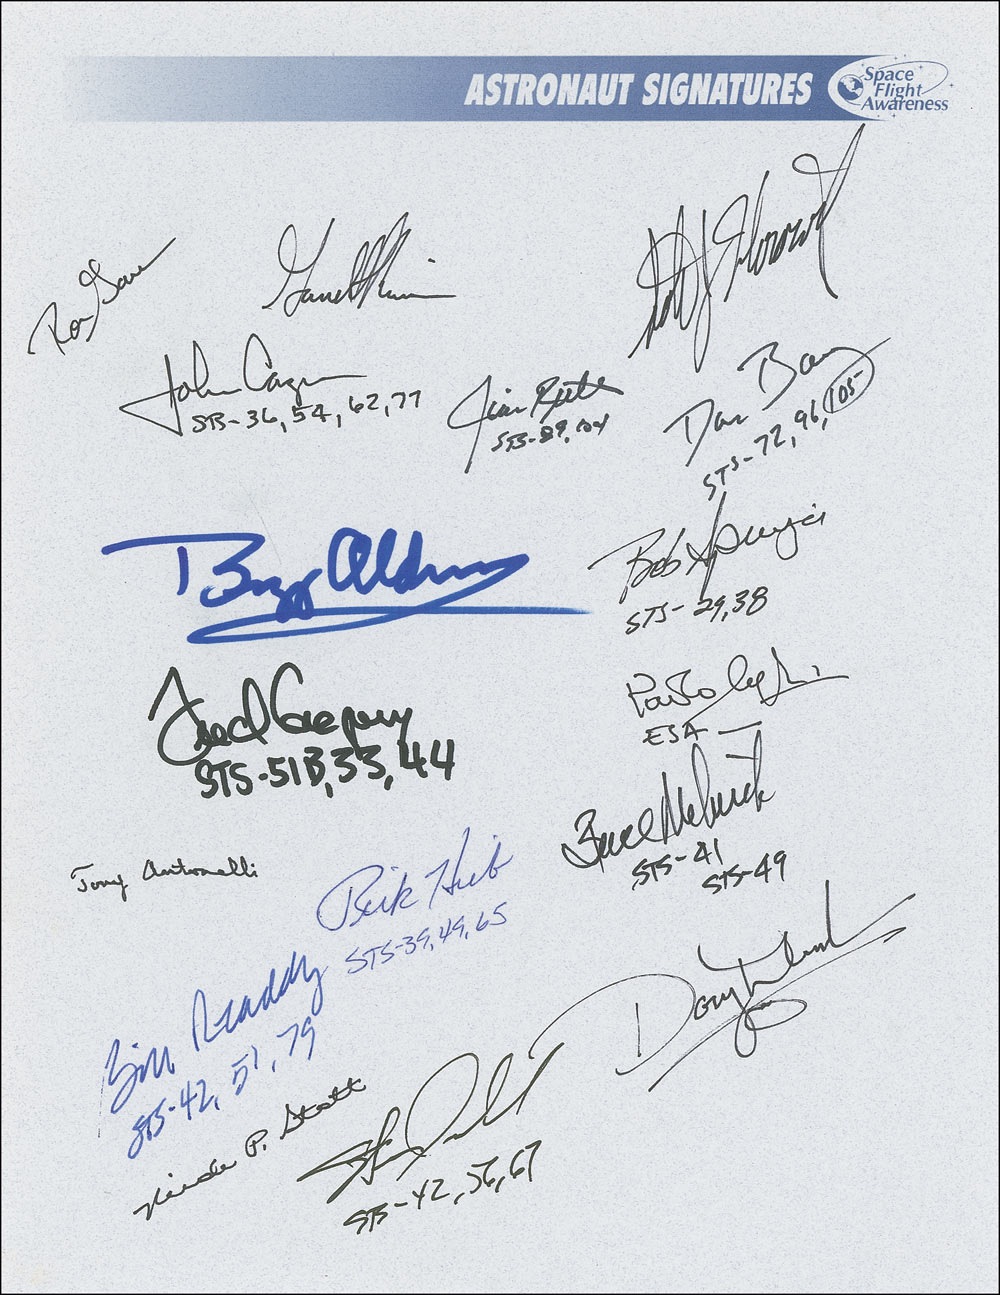 ASTRONAUT SIGNATURES
Space
Flight
Awareness
Ron Garan
Garrett
Scott J. Horowitz
John Casper
STS-36, 54, 62, 77
Jim Reilly
STS-89, 104
Dan Barry
STS-72, 96, 105
Buzz Aldrin
Bob Springer
STS-29, 38
Fred Gregory
STS-51B, 33, 44
Paolo
ESA
Bruce Melnick
STS-41
STS-49
Tony Antonelli
Rick Hieb
STS-39, 49, 65
Bill Readdy
STS-42, 51, 79
Doug Wheelock
Nicole P. Stott
Steve
STS-42, 56, 67